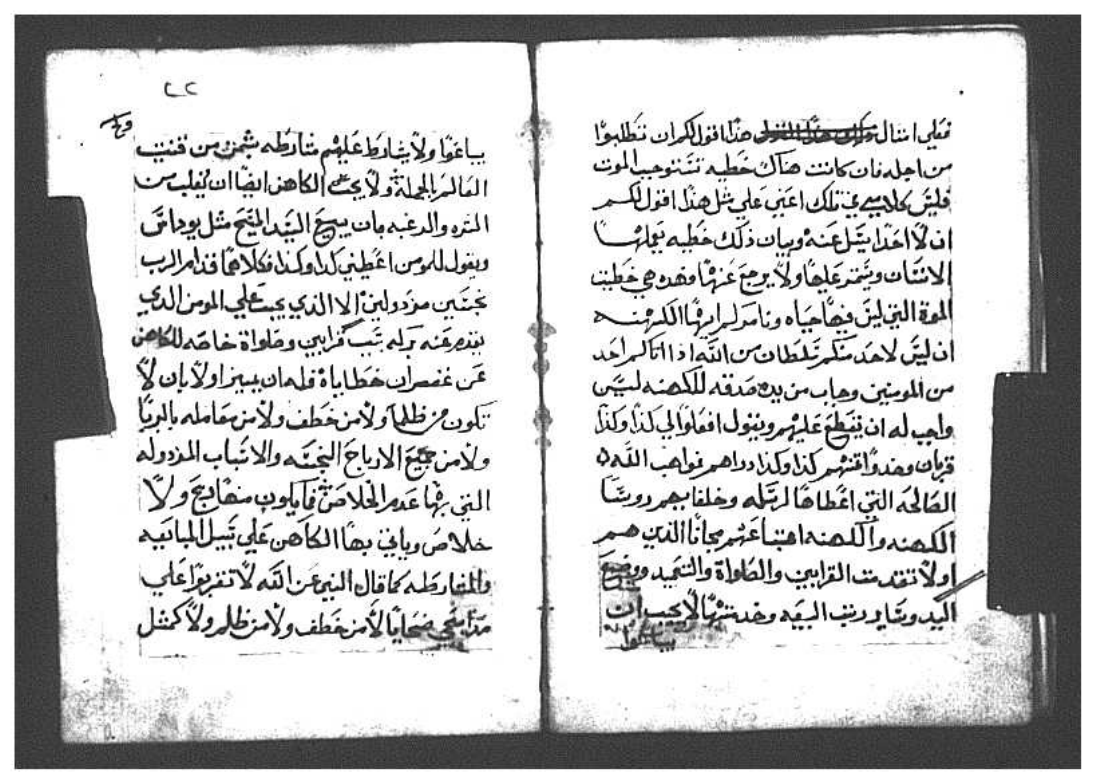 فعلي امثال هذا اقول لكم ان تتطلبوا
من اجله فان كانت هناك خطيه تستوجب الموت
فليس كلامي في تلك اعني علي مثل هذا اقول لكم
ان لا احدا يسل عنه وبيان ذلك خطيه يعملها
الانسان ويستمر عليها ولا يرجع عنها وهذه هي خطيت
الموة التي ليس فيها حياه
ان ليس لاحد منكم سلطان من الله اذا اتاكم احد
من المومنين وجاب من يده صدقه للكهنه ليس
واجب له ان يتقطع عليهم ويقول افعلوا لي كذا وكذا
قربان وخدوا منهم كذا وكذا دراهم فواهب الله
الصالحه التي اعطاها لرسله وخلفايهم روسا
الكهنه والكهنه امتباعهم مجانا الذين هم
اولا تقدمت القرابين والصلواة والتمجيد ووضع
اليد وساير رتب البيعه وخدمتها لا يجب ان
يباعوا
يباعوا ولا يشارط عليهم مشارطه بثمن من قنيت
العالم بالجملة ولا يجب الكاهن ايضا ان يغلب من
الشره والرغبه بان يبيع السيد المسيح مثل يوداس
ويقول للمومن اعطيني كذا وكذا فكلاهما قدام الرب
نجسين مزدولين الا الذي يجب علي المومن الذي
يقدم عنه قرابين وصلواة خاصه للكاهن
عن غفران خطاياه فله ان يميز اولا بان لا
تكون من ظلما ولا من خطف ولا من معامله بالربا
ولا من جميع الارباح النجسه والاسباب المزدوله
التي فيها عدم الخلاص فما يكون منها ربح ولا
خلاص وياتي بها الكاهن علي سبيل المبايعه
والمشارطه كما قال النبي عن الله لا تقربوا علي
مذابحي ضحايا لا من خطف ولا من ظلم ولا كمثل